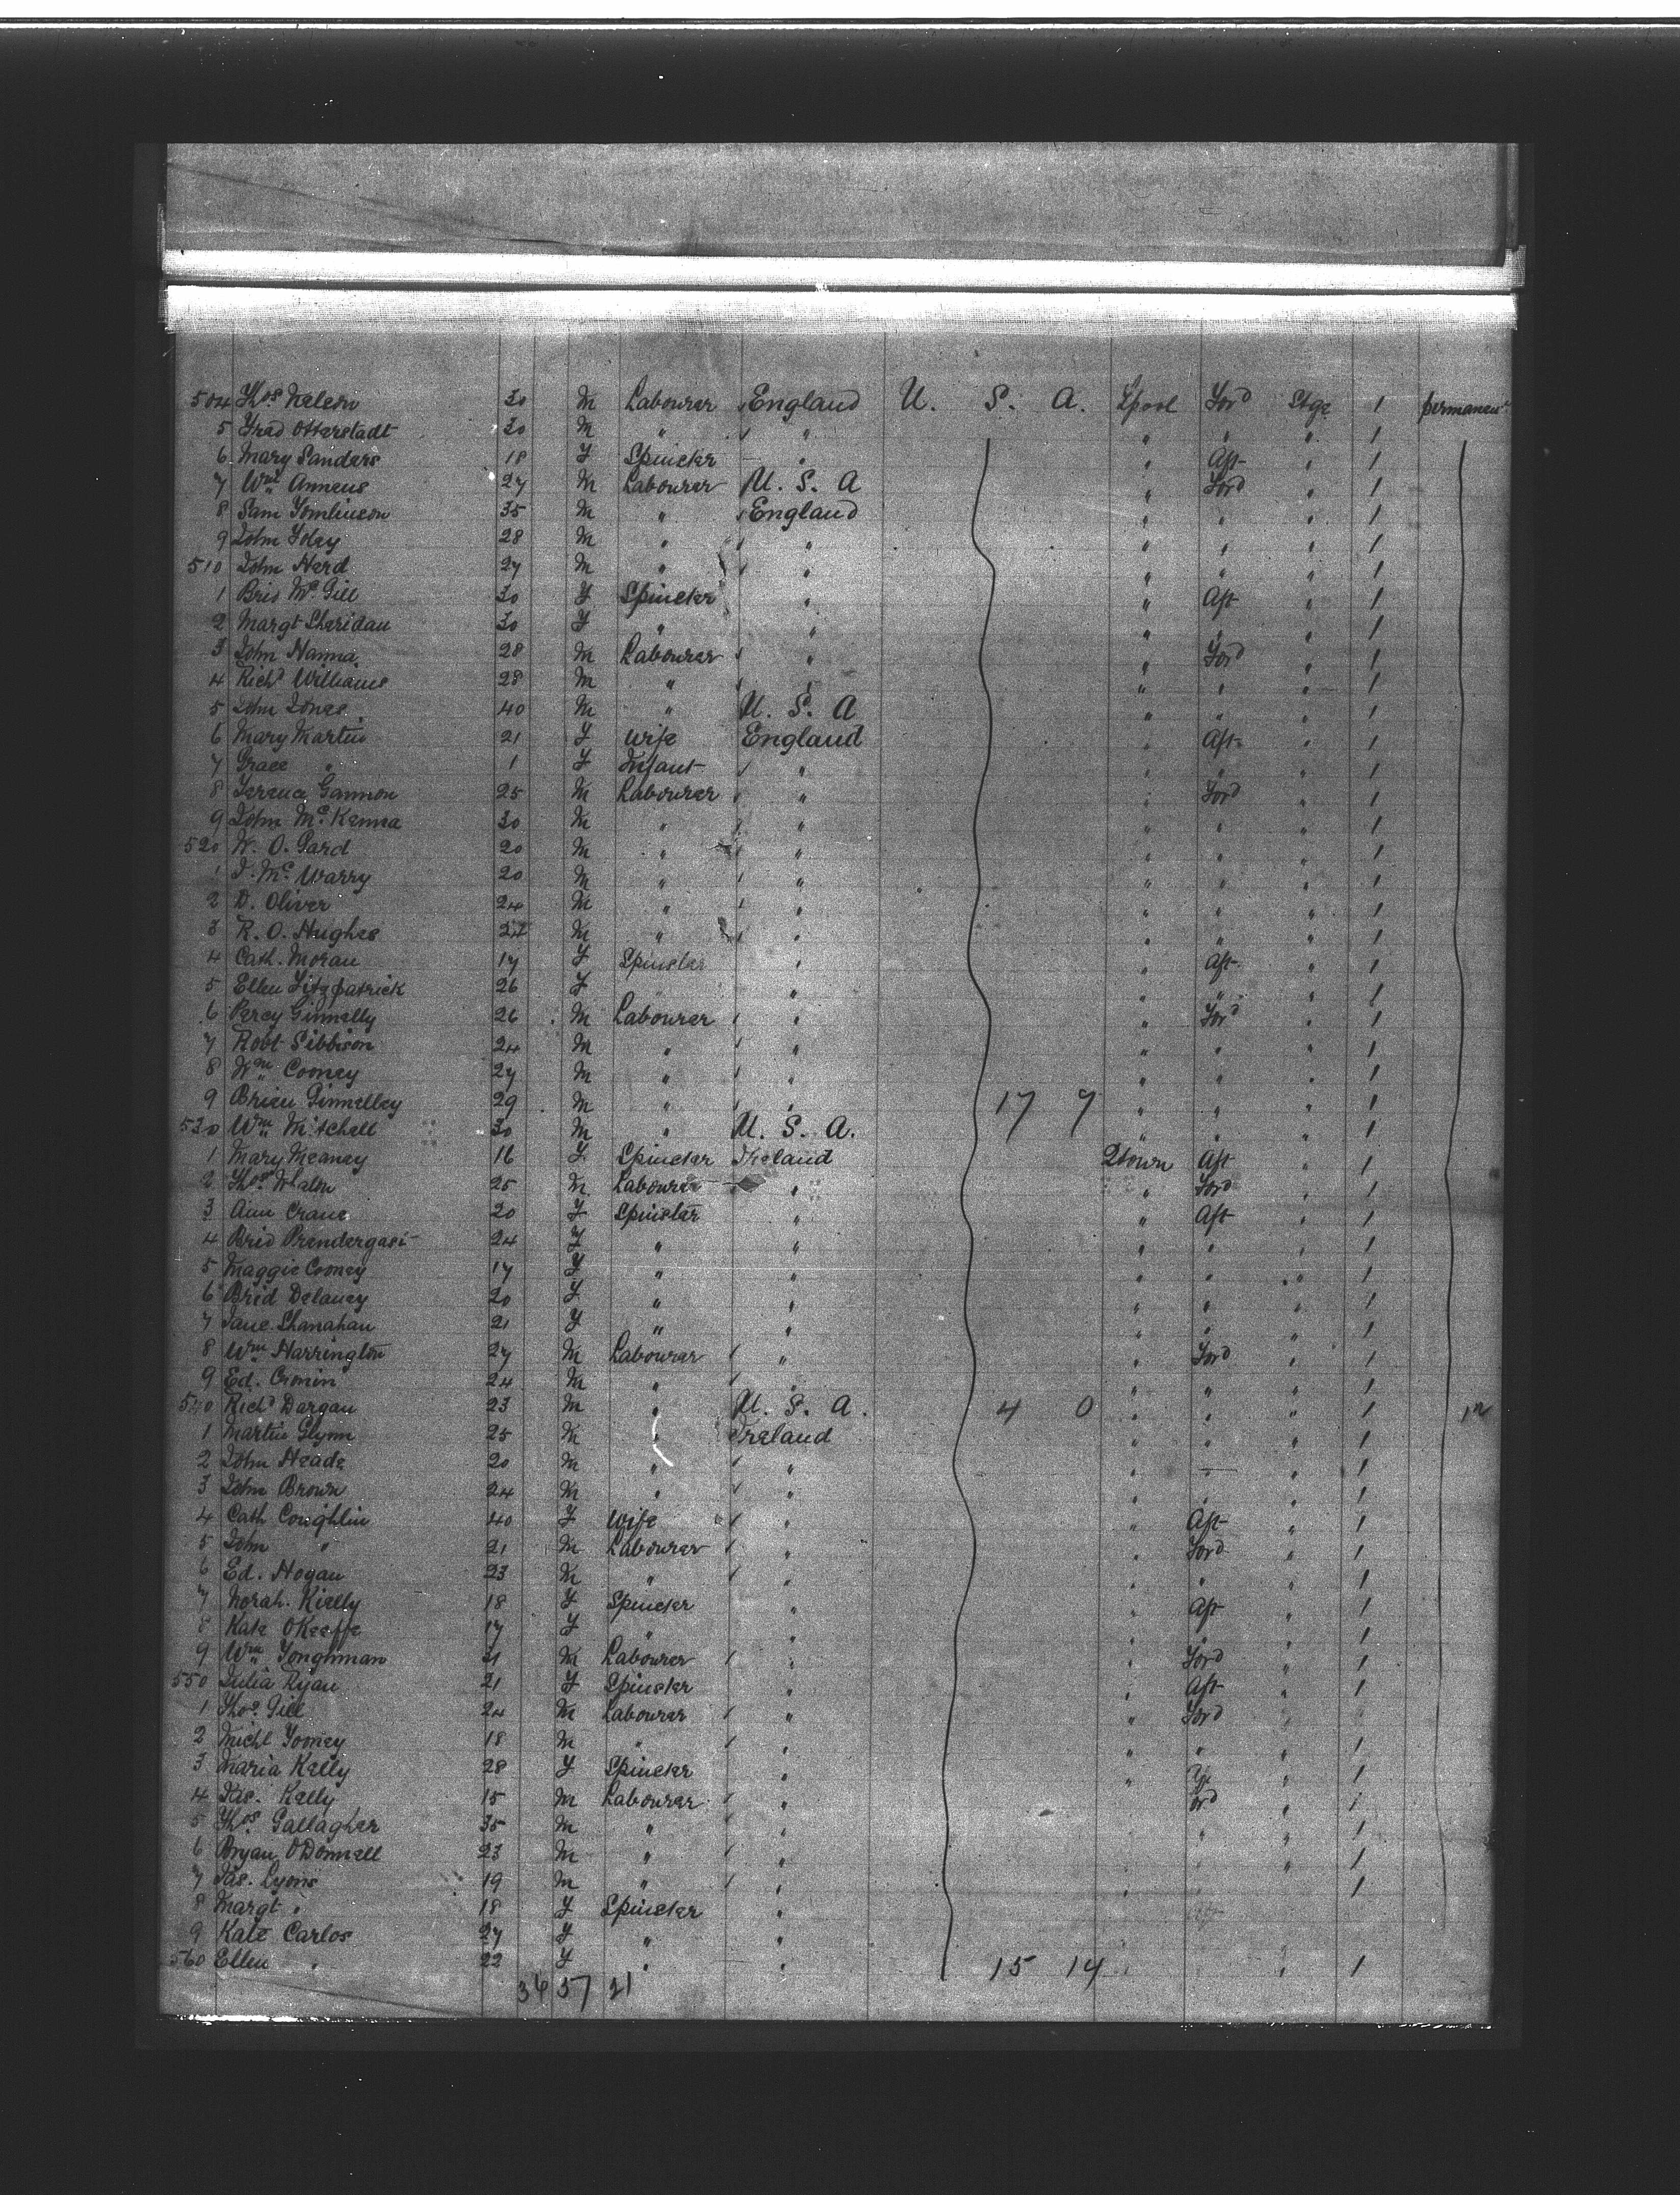 504 Thos Nelson 30 M Labourer England U. S. A. Lpool Ford Stge 1 permanent
5 Fred Otterstadt 30 M " " " " " 1
6 Mary Sanders 18 F Spinster " " Aft " 1
7 Wm Anneus 27 M Labourer U. S. A " Ford " 1
8 Sam Tomlinson 35 M " England " " " 1
9 John Foley 28 M " " " " " 1
510 John Herd 27 M " " " " " 1
1 Brid McGill 30 F Spinster " " Aft " 1
2 Margt Sheridan 30 F " " " " " 1
3 John Hanna 28 M Labourer " " Ford " 1
4 Richd Williams 28 M " " " " " 1
5 John Jones 40 M " U. S. A " " " 1
6 Mary Martin 21 F Wife England " Aft " 1
7 Grace " 1 F Infant " " " " 1
8 Terence Gannon 25 M Labourer " " Ford " 1
9 John McKenna 30 M " " " " " 1
520 W. O. Pard 20 M " " " " " 1
1 J. McWarry 20 M " " " " " 1
2 D. Oliver 24 M " " " " " 1
3 R. O. Hughes M " " " " " 1
4 Cath. Moran 17 F Spinster " " Aft " 1
5 Ellen Fitzpatrick 26 F " " " " 1
6 Percy Ginnelly 26 M Labourer " " Ford " 1
7 Robt Sibbison 24 M " " " " " 1
8 Wm Cooney 27 M " " " " " 1
9 Brien Ginnelley 29 M " " 17 7 " " " 1
530 Wm Mitchell 30 M " U. S. A. " " " 1
1 Mary Meaney 16 F Spinster Ireland Qtown Aft " 1
2 Thos Walsh 25 M Labourer " " Ford " 1
3 Ann Crane 20 F Spinster " " Aft " 1
4 Brid Prendergast 24 F " " " " " 1
5 Maggie Cooney 17 F " " " " " 1
6 Brid Delaney 20 F " " " " " 1
7 Jane Shanahan 21 F " " " " " 1
8 Wm Harrington 27 M Labourer " " Ford " 1
9 Ed. Cronin 24 M " " " " " 1
540 Richd Dargan 23 M " U. S. A. 4 0 " " " 1
1 Martin Glynn 25 M " Ireland " " " 1
2 John Heade 20 M " " " " 1
3 John Brown 24 M " " " " 1
4 Cath Coughlin 40 F Wife " " Aft " 1
5 John " 21 M Labourer " " Ford " 1
6 Ed. Hogan 23 M " " " " " 1
7 Norah. Kielly 18 F Spinster " " Aft " 1
8 Kate OKeeffe 17 F " " " " " 1
9 Wm Tonghman 31 M Labourer " " Ford " 1
550 Julia Ryan 21 F Spinster " " Aft " 1
1 Thos. Gill 24 M Labourer " " Ford "
2 Michl Tooney 18 M " " " " " 1
3 Maria Kelly 28 F Spinster " " " 1
4 Jas. Kelly 15 M Labourer " ord " 1
5 Thos Gallagher 35 M " " " " 1
6 Bryan ODonnell 23 M " " " 1
7 Jas. Lyons 19 M " " " 1
8 Margt " 18 F Spinster "
9 Kate Carlos 27 F " "
560 Ellen " 22 F " " 15 14 " 1
36 37 21